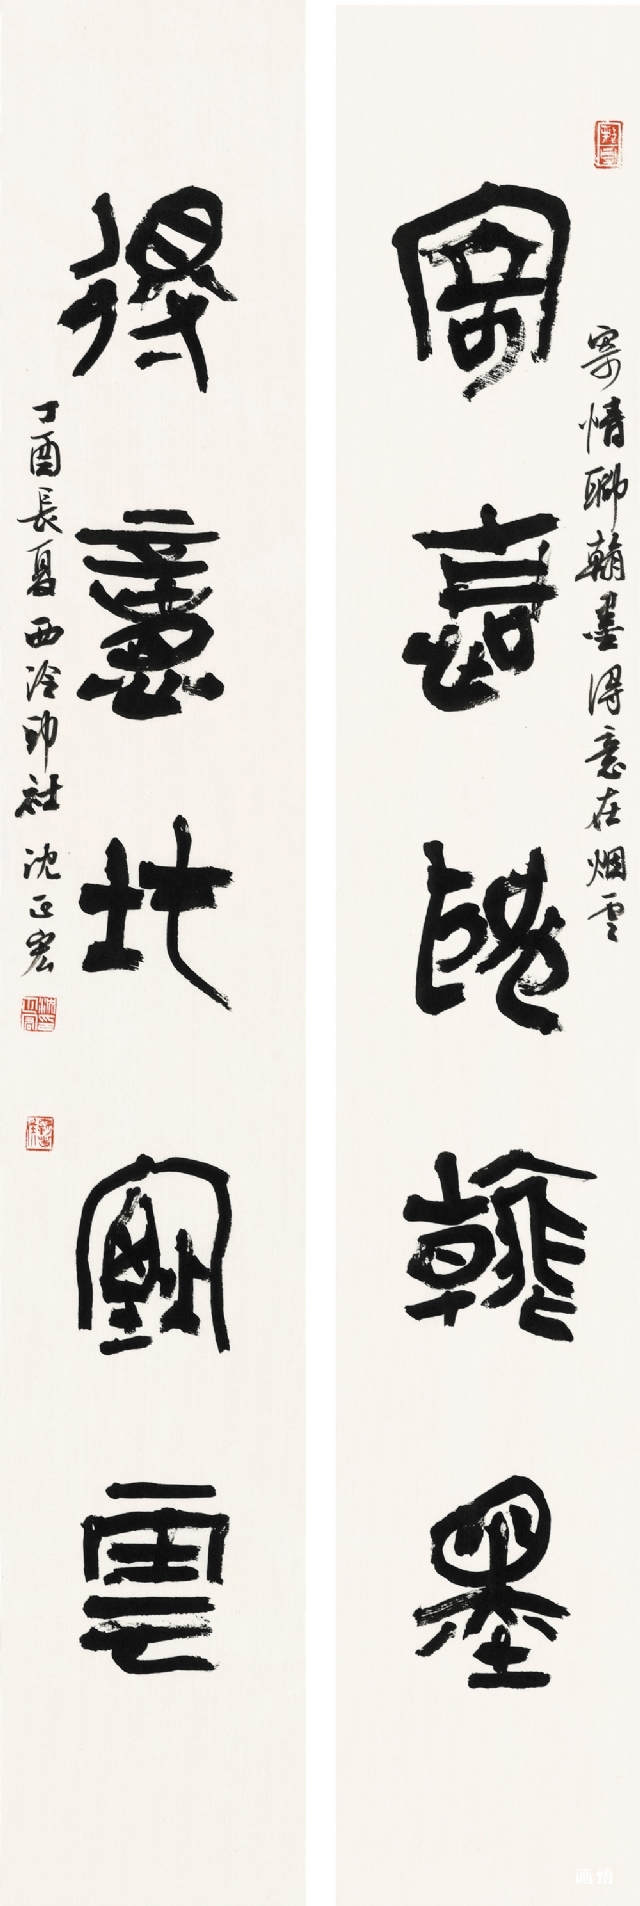 寄情聊翰墨得意在烟雲
寄情聊翰墨
得意在煙雲
丁酉長夏西泠印社沈正宏